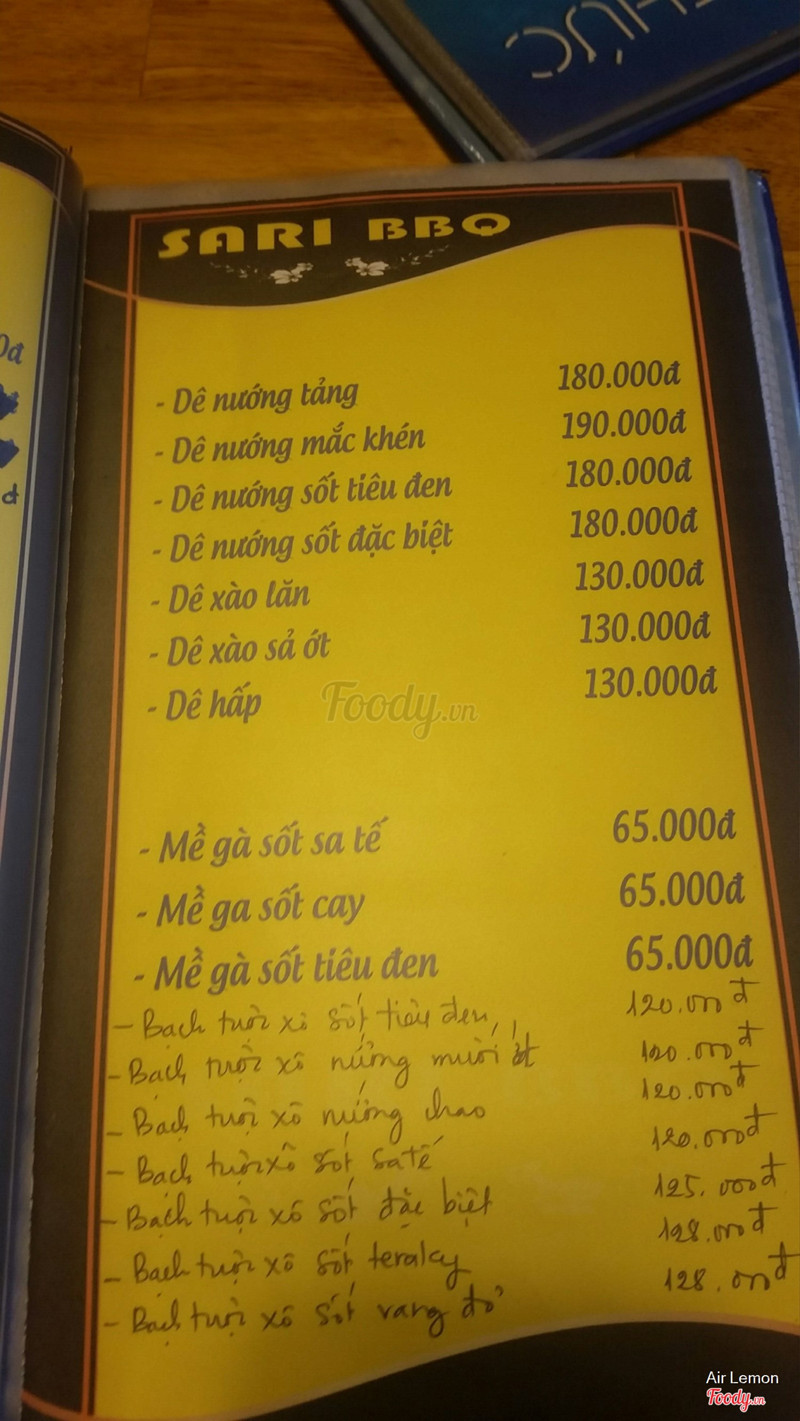 THỨC
SARI BBQ
0đ
đ
- Dê nướng tảng 180.000đ
- Dê nướng mắc khén 190.000đ
- Dê nướng sốt tiêu đen 180.000đ
- Dê nướng sốt đặc biệt 180.000đ
- Dê xào lăn 130.000đ
- Dê xào sả ớt 130.000đ
- Dê hấp 130.000đ
Foody.vn
- Mề gà sốt sa tế 65.000đ
- Mề ga sốt cay 65.000đ
- Mề gà sốt tiêu đen 65.000đ
- Bạch tuộc xô sốt tiêu đen 120.000đ
- Bạch tuộc xô nướng muối ớt 120.000đ
- Bạch tuộc xô nướng chao 120.000đ
- Bạch tuộc xô sốt sa tế 120.000đ
- Bạch tuộc xô sốt đặc biệt 125.000đ
- Bạch tuộc xô sốt teraky 128.000đ
- Bạch tuộc xô sốt vang đỏ 128.000đ
Air Lemon
Foody.vn